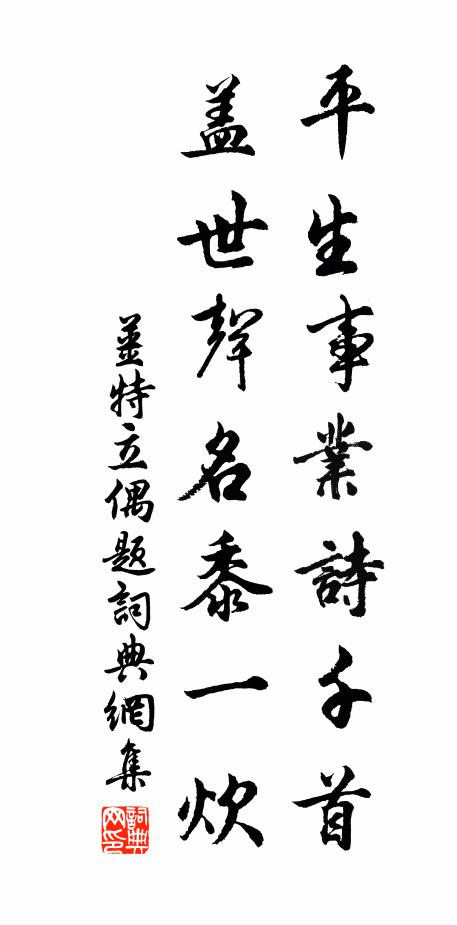 平生事業詩千首
盖世聲名黍一炊
姜特立偶题詞典網集
詞典网印